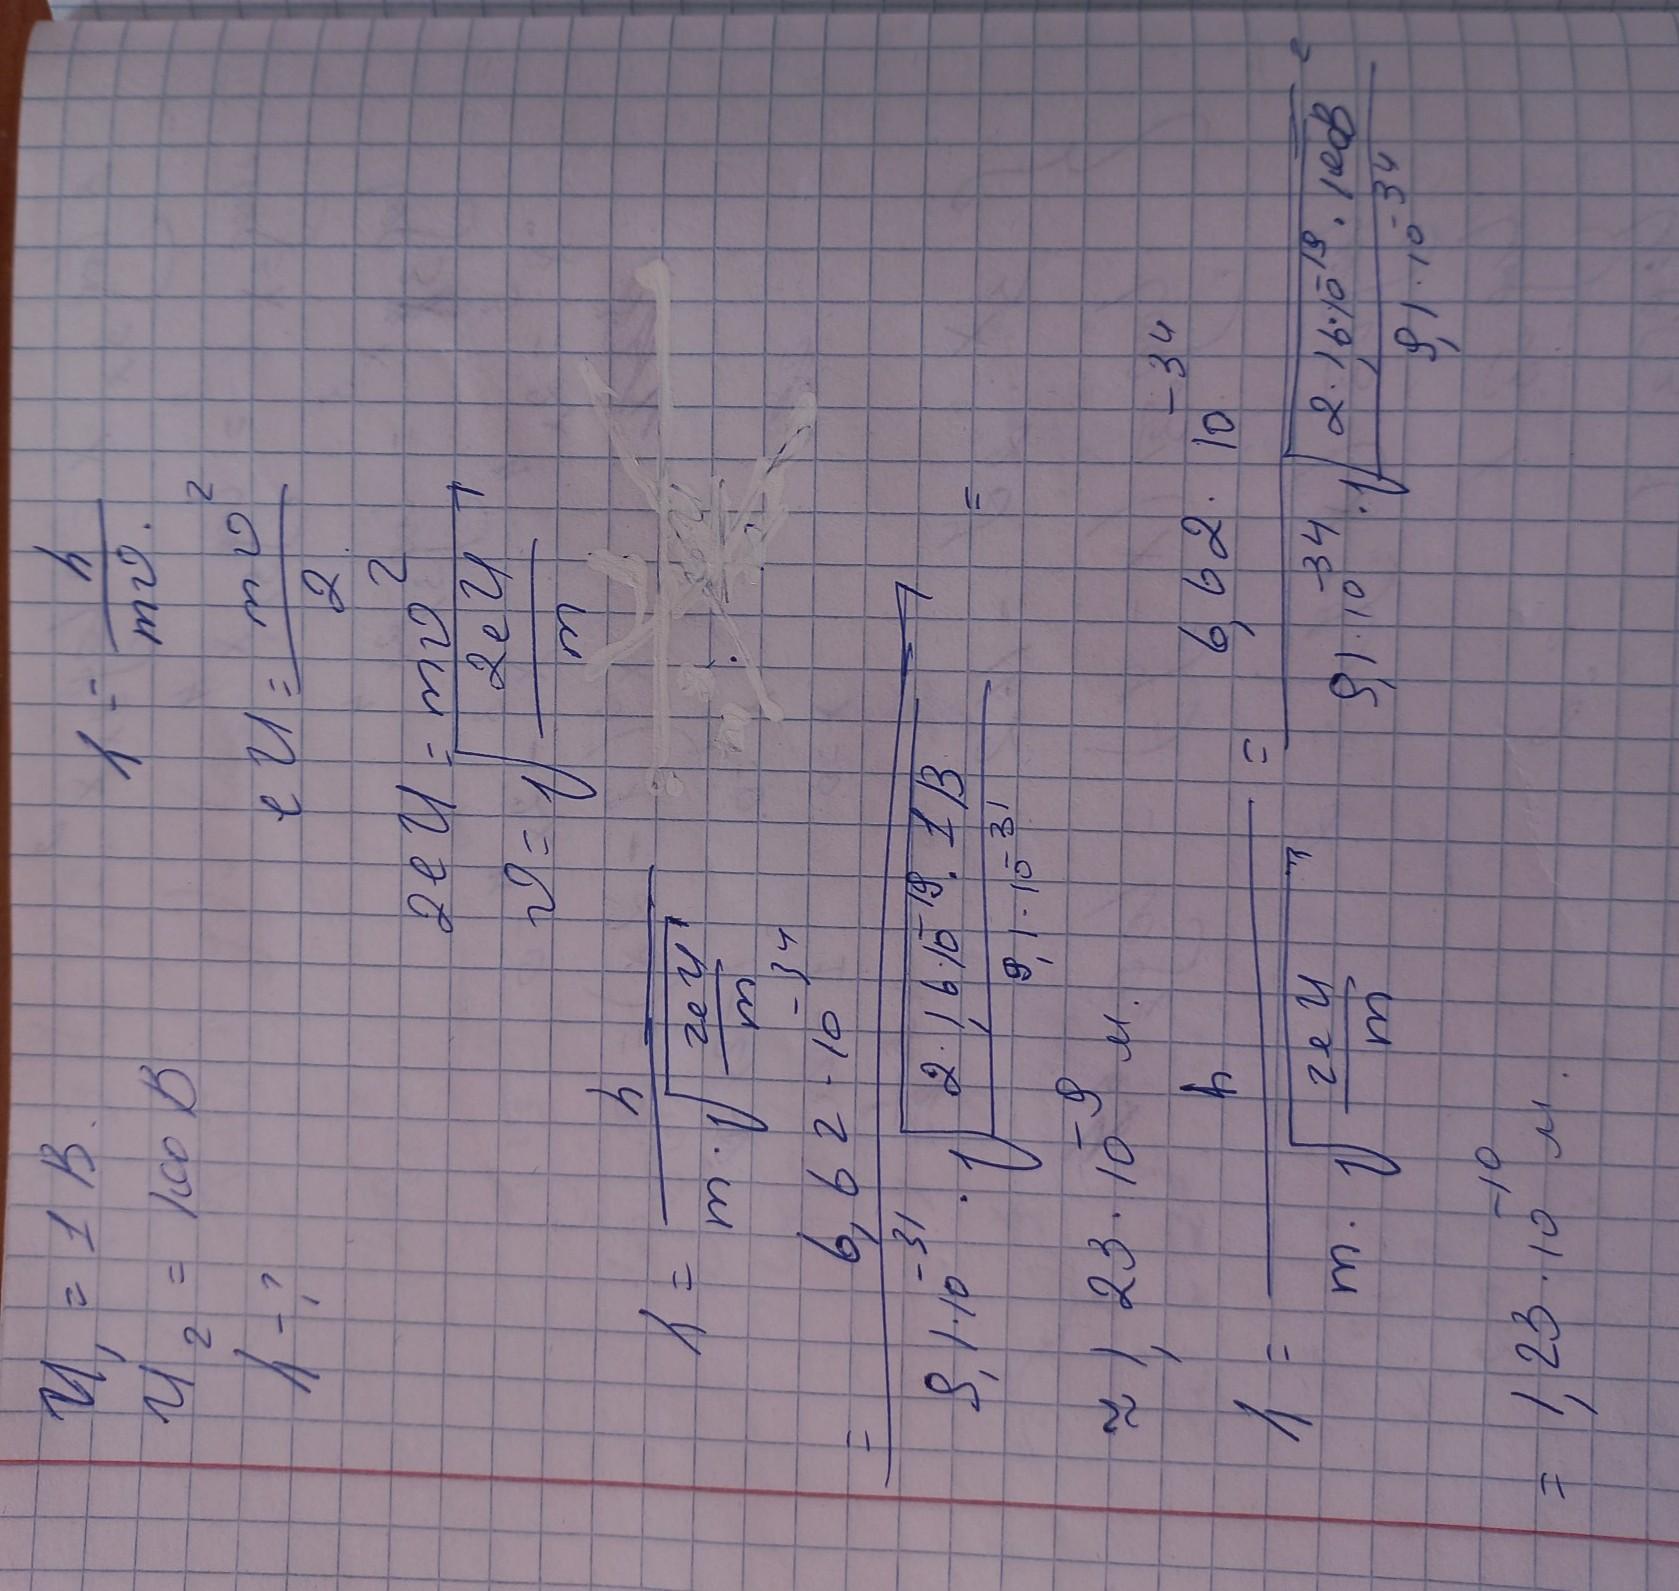 U₁ = 1 В.
λ = h / mυ.
U₂ = 100 В
eU = mυ² / 2
λ - ?
2eU = mυ²
υ = √(2eU / m)
λ = h / (m · √(2eU / m)) =
= 6,62 · 10⁻³⁴ / (9,1 · 10⁻³¹ · √(2 · 1,6 · 10⁻¹⁹ · 1В / 9,1 · 10⁻³¹)) =
≈ 1,23 · 10⁻⁹ м.
λ = h / (m · √(2eU / m)) = 6,62 · 10⁻³⁴ / (9,1 · 10⁻³⁴ · √(2 · 1,6 · 10⁻¹⁹ · 100В / 9,1 · 10⁻³⁴)) =
= 1,23 · 10⁻¹⁰ м.